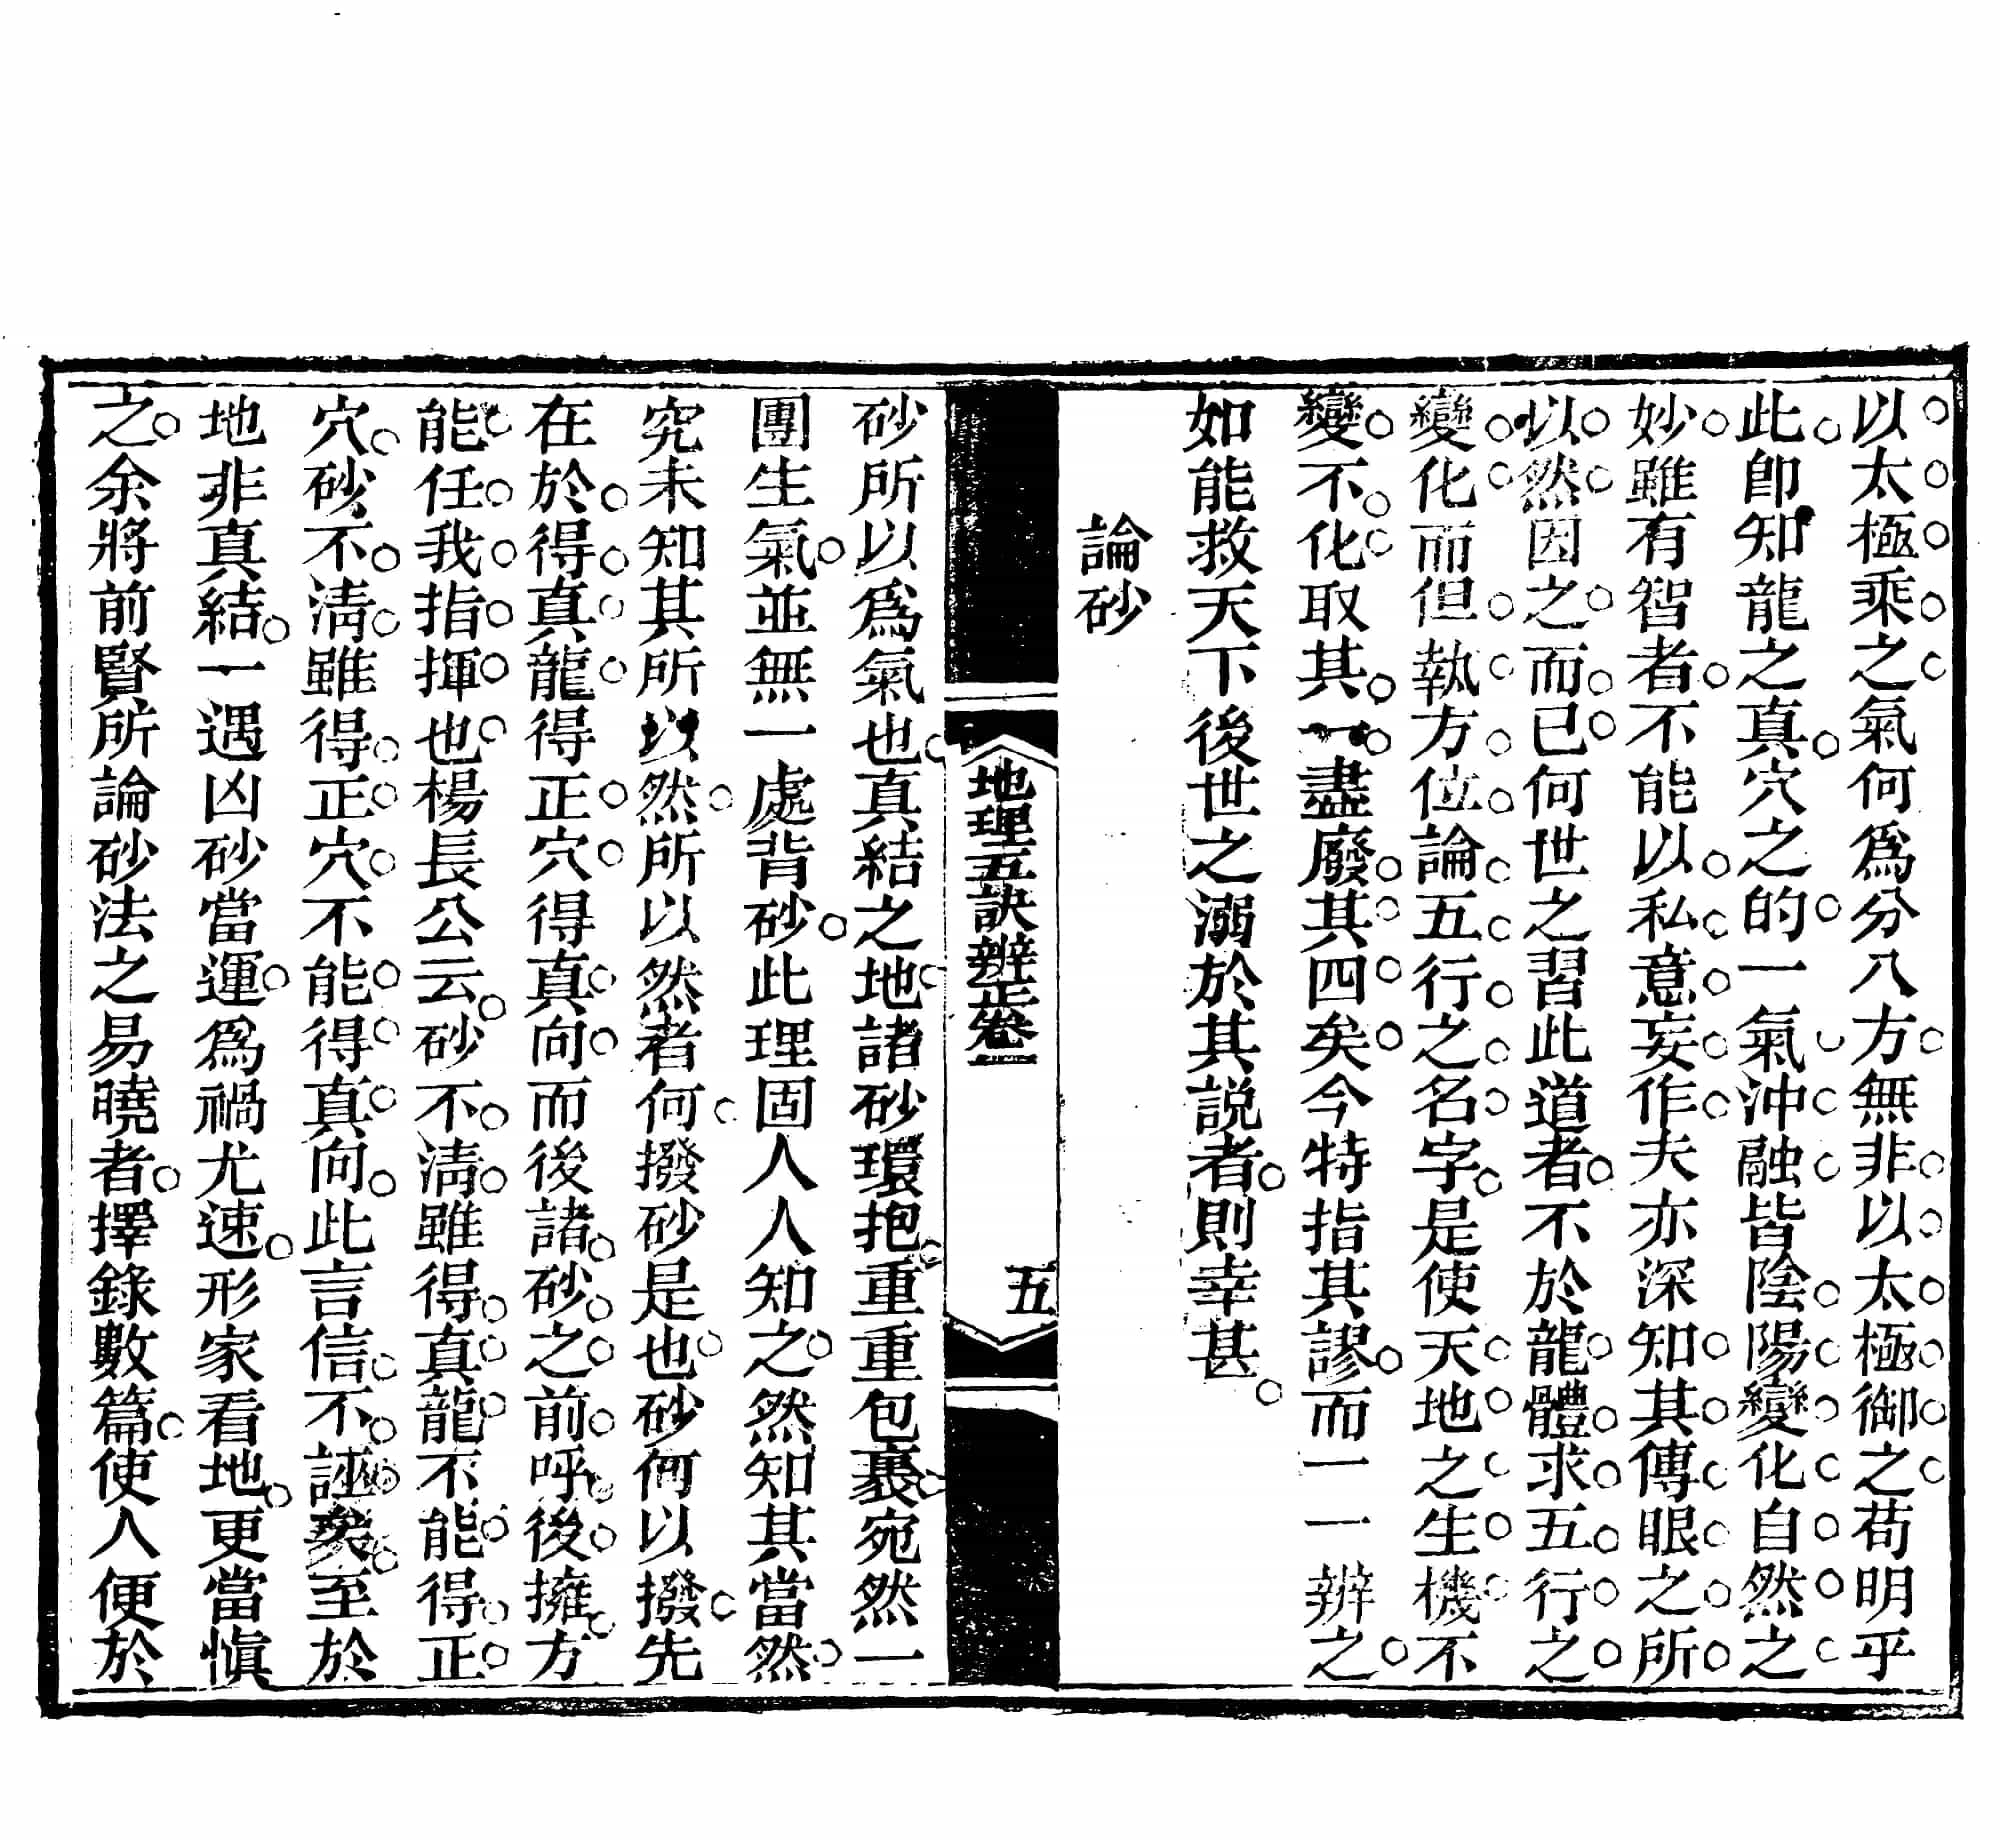 以太極乘之氣何爲分八方無非以太極御之苟明乎
此卽知龍之真穴之的一氣沖融皆陰陽變化自然之
妙雖有智者不能以私意妄作夫亦深知其傳眼之所
以然因之而已何世之習此道者不於龍體求五行之
變化而但執方位論五行之名字是使天地之生機不
變不化取其一盡廢其四矣今特指其謬而一一辨之
如能救天下後世之溺於其説者則幸甚
論砂
地理五訣辨正卷一
五
砂所以爲氣也真結之地諸砂環抱重重包裹宛然一
團生氣並無一處背砂此理固人人知之然知其當然
究未知其所以然所以然者何撥砂是也砂何以撥先
在於得真龍得正穴得真向而後諸砂之前呼後擁方
能任我指揮也楊長公云砂不淸雖得真龍不能得正
穴砂不淸雖得正穴不能得真向此言信不誣矣至於
地非真結一遇凶砂當運爲禍尤速形家看地更當愼
之余將前賢所論砂法之易曉者擇錄數篇使人便於